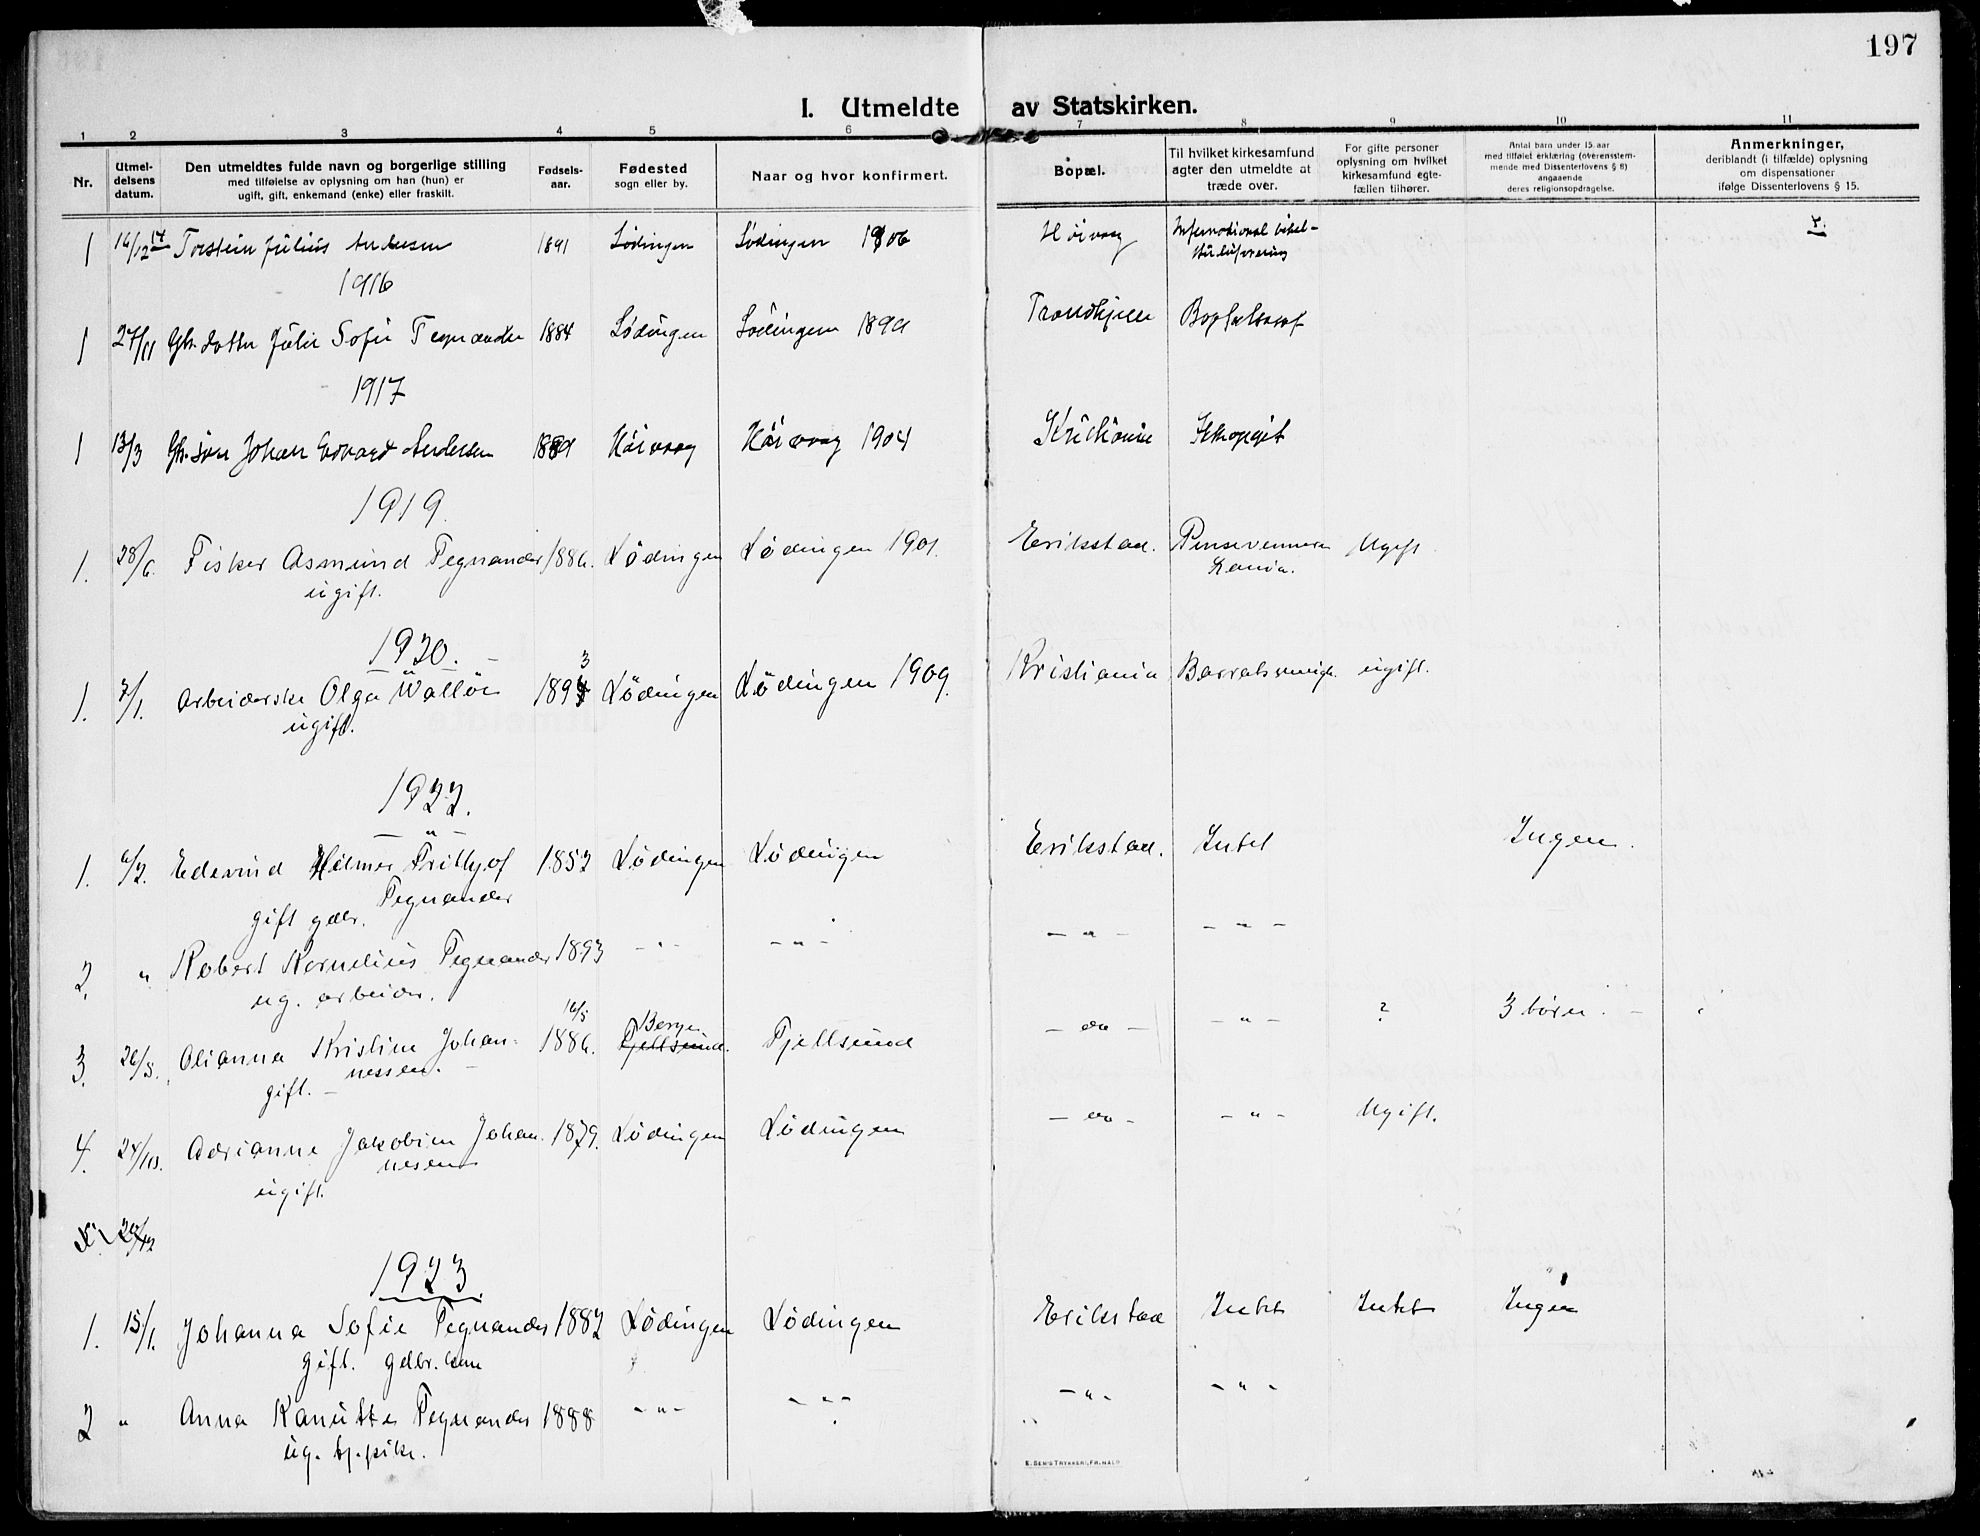 197
I. Utmeldte av Statskirken.
1 2 3 4 5 6 7 8 9 10 11
Nr.
Utmel-
delsens
datum.
Den utmeldtes fulde navn og borgerlige stilling
med tilføielse av oplysning om han (hun) er
ugift, gift, enkemand (enke) eller fraskilt.
Fødsels-
aar.
Fødested
sogn eller by.
Naar og hvor konfirmert.
Bopæl.
Til hvilket kirkesamfund
agter den utmeldte at
træde over.
For gifte personer
oplysning om hvilket
kirkesamfund egte-
fællen tilhører.
Antal barn under 15 aar
med tilføiet erklæring (overensstem-
mende med Dissenterlovens § 8)
angaaende
deres religionsopdragelse.
Anmerkninger,
deriblandt (i tilfælde) oplysning
om dispensationer
ifølge Dissenterlovens § 15.
1 16/12 14 Torstein Julius Andersen 1891 Lødingen Lødingen 1906 International bibel-
1916
1 27/11 Julie Sofie Tegnander 1884 Lødingen Lødingen 1899 Trondhjem
1917
1 13/3 Johan Edvard Andersen Høivaag Høivaag 1904
1919.
1. 28/6. Fisker Asmund Tegnander 1886. Lødingen Lødingen 1901. Erikstad. Pinsevennern Ugift
ugift. Kania.
1920.
1. 7/1. Arbeiderske Olga Walløe 189 3 Lødingen Lødingen 1909. Kristiania ugift.
ugift.
1922.
1. 6/2. Edevind Hilmer Frithjof 1852 Lødingen Lødingen Erikstad. Intet Ingen.
Tegnander
gift gdbr.
2. " Robert Kornelius Tegnander 1893 - " - - " - - " - - " -
ug. arbeider.
16/5 Bergen
3. 26/8. Olianna Kristine Johan- 1886. Fjellsund. Fjellsund - do - - " - ? 3 børn. -
nessen. -
gift. -
4. 24/10. Adrianne Jakobine Johan- 1879. Lødingen Lødingen - do - - " - Ugift.
nesen
ugift.
1923.
1. 15/1. Johanna Sofie Tegnander 1882 Lødingen Lødingen Erikstad Intet Intet Ingen
gift. gdbr. kone
2 " Anna Kanutte Tegnander 1888 - " - - " - - " - - " -
ug. tj. pike.
E. SEM'S TRYKKERI, FR.HALD